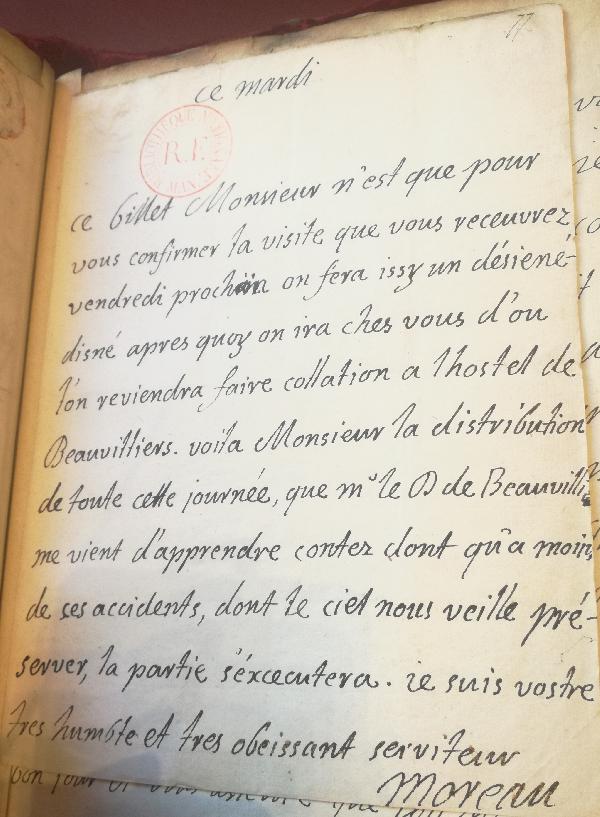 77
ce mardi
BIBLIOTHEQUE
R.F.
ce billet Monsieur n'est que pour
vous confirmer la visite que vous receuvrez
vendredi prochain on fera issy un désiené-
disné apres quoy on ira ches vous d'ou
l'on reviendra faire collation a lhostel de
Beauvilliers. voila Monsieur la distribution
de toute cette journée, que mr le D de Beauvilli
me vient d'apprendre contez dont qu'a moins
de ces accidents, dont le ciel nous veille pré-
server, la partie s'éxcecutera. ie suis vostre
tres humble et tres obeissant serviteur
Moreau
bon jour et vous que